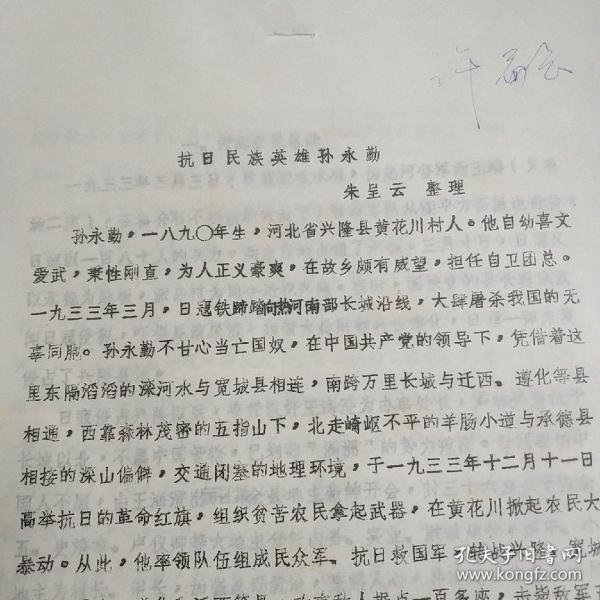 抗日民族英雄孙永勤
朱呈云 整理
孙永勤，一八九〇年生，河北省兴隆县黄花川村人。他自幼喜文
爱武，秉性刚直，为人正义豪爽，在故乡颇有威望，担任自卫团总。
一九三三年三月，日寇铁蹄踏向热河南部长城沿线，大肆屠杀我国的无
辜同胞。孙永勤不甘心当亡国奴，在中国共产党的领导下，凭借着这
里东隔滔滔的滦河水与宽城县相连，南跨万里长城与迁西、遵化等县
相通，西靠森林茂密的五指山下，北走崎岖不平的羊肠小道与承德县
相接的深山偏僻，交通闭塞的地理环境，于一九三三年十二月十一日
高举抗日的革命红旗，组织贫苦农民拿起武器，在黄花川掀起农民大
暴动。从此，他率领队伍组成民众军、抗日救国军，转战兴隆、宽城
孔夫子旧书网
www.kongfz.com